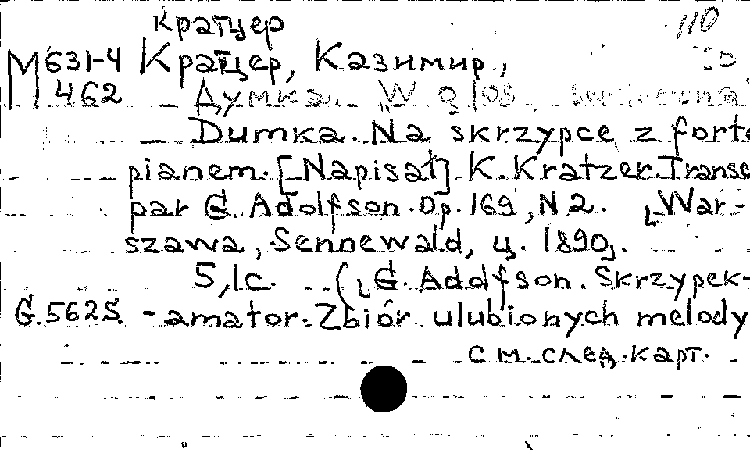 Кратцер
110
М 631-4 Кратцер, Казимир,
462 Думка. "W głos
Dumka. Na skrzypce z forte
pianem. [Napisał] K. Kratzer. Transc
par G. Adolfson. Op. 169, N 2. [War-
szawa, Sennewald, ц. 1890].
5, 1 с. ([G. Adolfson. Skrzypek-
G.5625 -amator. Zbiór ulubionych melody
см. след. карт.